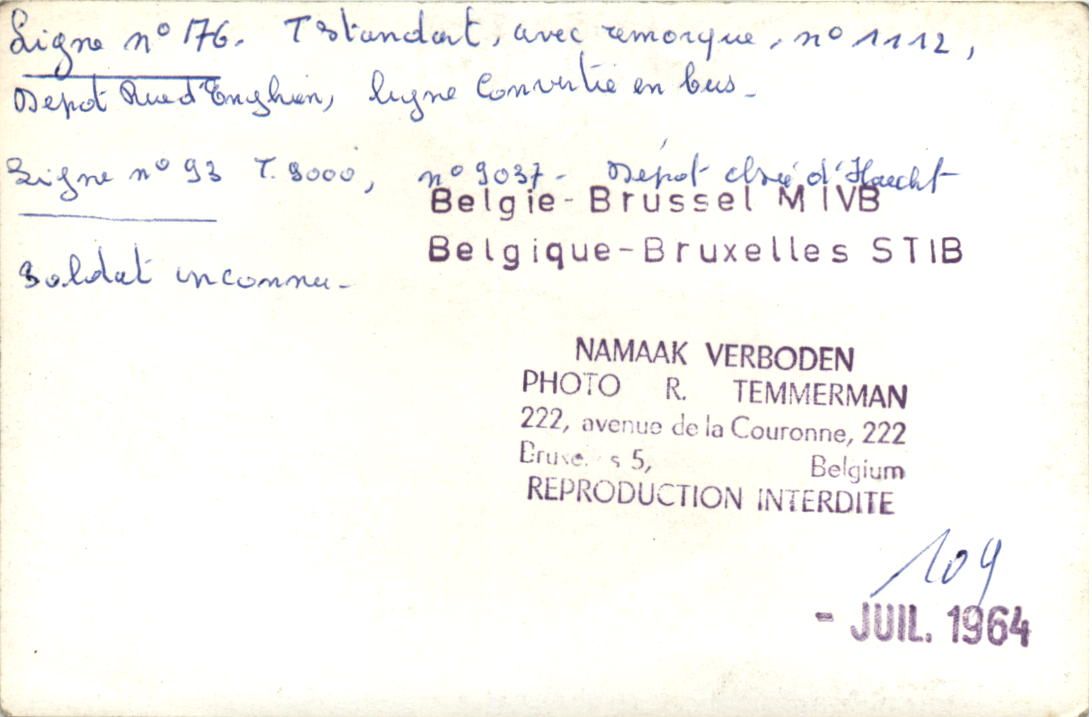 Ligne n° 176. T Standart, avec remorque, n° 1112,
Depot Rue d'Enghien, ligne Convertie en bus -
Ligne n° 93 T. 9000, n° 9037 - Dépôt d'Haecht
Belgie-Brussel MIVB
Belgique-Bruxelles STIB
Soldat inconnu -
NAMAAK VERBODEN
PHOTO R. TEMMERMAN
222, avenue de la Couronne, 222
5, Belgium
REPRODUCTION INTERDITE
109
- JUIL. 1964